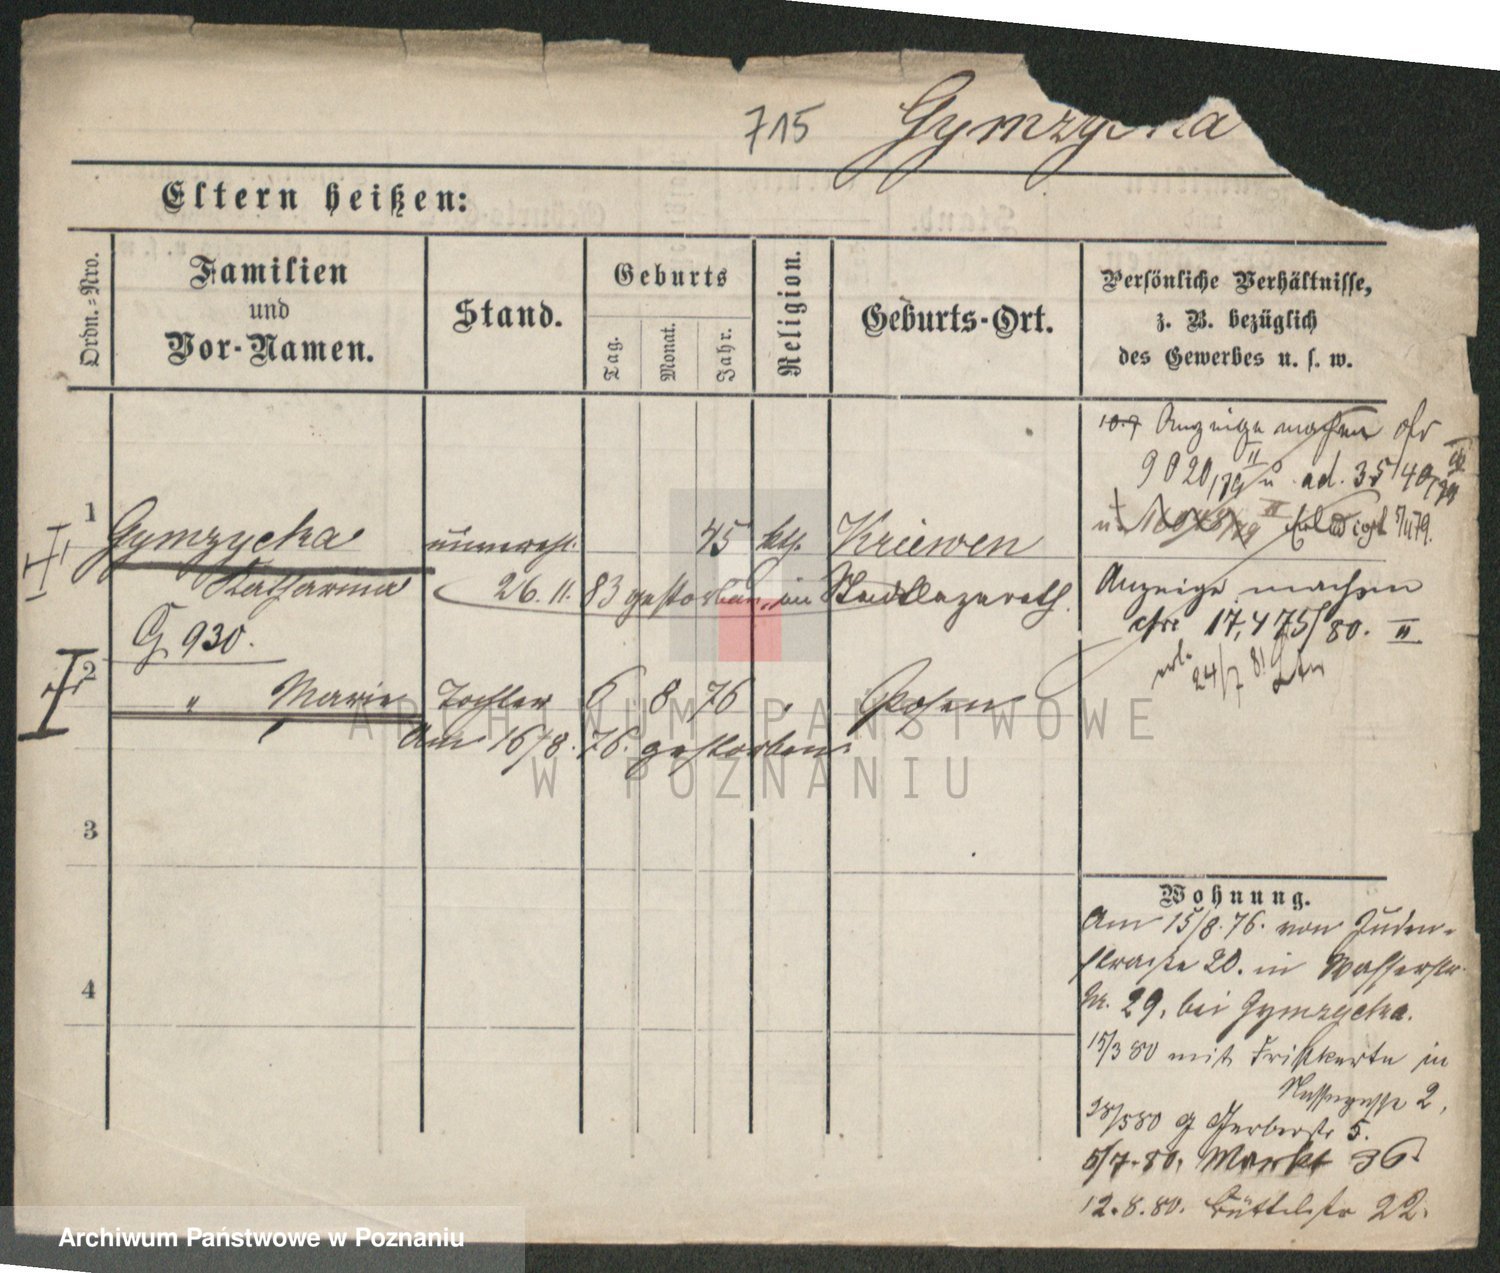 715 Gymzycka
Eltern heißen:
Ordn.=Nro.
Familien
und
Vor-Namen.
Stand.
Geburts
Tag.
Monat.
Jahr.
Religion.
Geburts-Ort.
Persönliche Verhältnisse,
z. B. bezüglich
des Gewerbes u. s. w.
10.7 Anzeige machen
9020/79 II u. ad. 35140/79
1
Gymzycka unvereh. 45 kth. Kriewen
Katharina 26. 11. 83 gestorben im Stadtlazareth.
G 930.
Anzeige machen
17,475/80. II
24/7 81
2
" Marie Tochter 6 8 76 " Posen
Am 16/8. 76. gestorben.
3
4
Wohnung.
Am 15/8. 76. von Juden-
straße 20. in Wasserstr.
Nr. 29, bei Gymzycka.
15/3 80 mit Fristkarte in
2,
28/5 80 Gerberstr 5.
5/7. 80. Markt 36.
12. 8. 80. Büttelstr 22.
ARCHIWUM PAŃSTWOWE
W POZNANIU
Archiwum Państwowe w Poznaniu